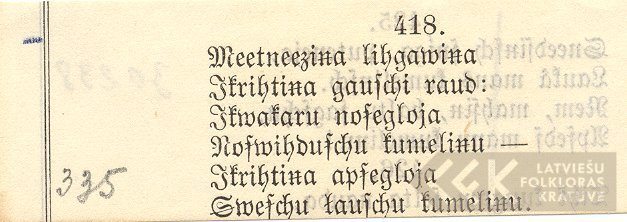 418.
Meetneezina lihgawina
Ikrihtina gauſchi raud:
Ikwakaru noſegloja
Noſwihduſchu kumelinu —
Ikrihtina apſegloja
Sweſchu lauſchu kumelinu.
335
LATVIEŠU
FOLKLORAS
KRĀTUVE